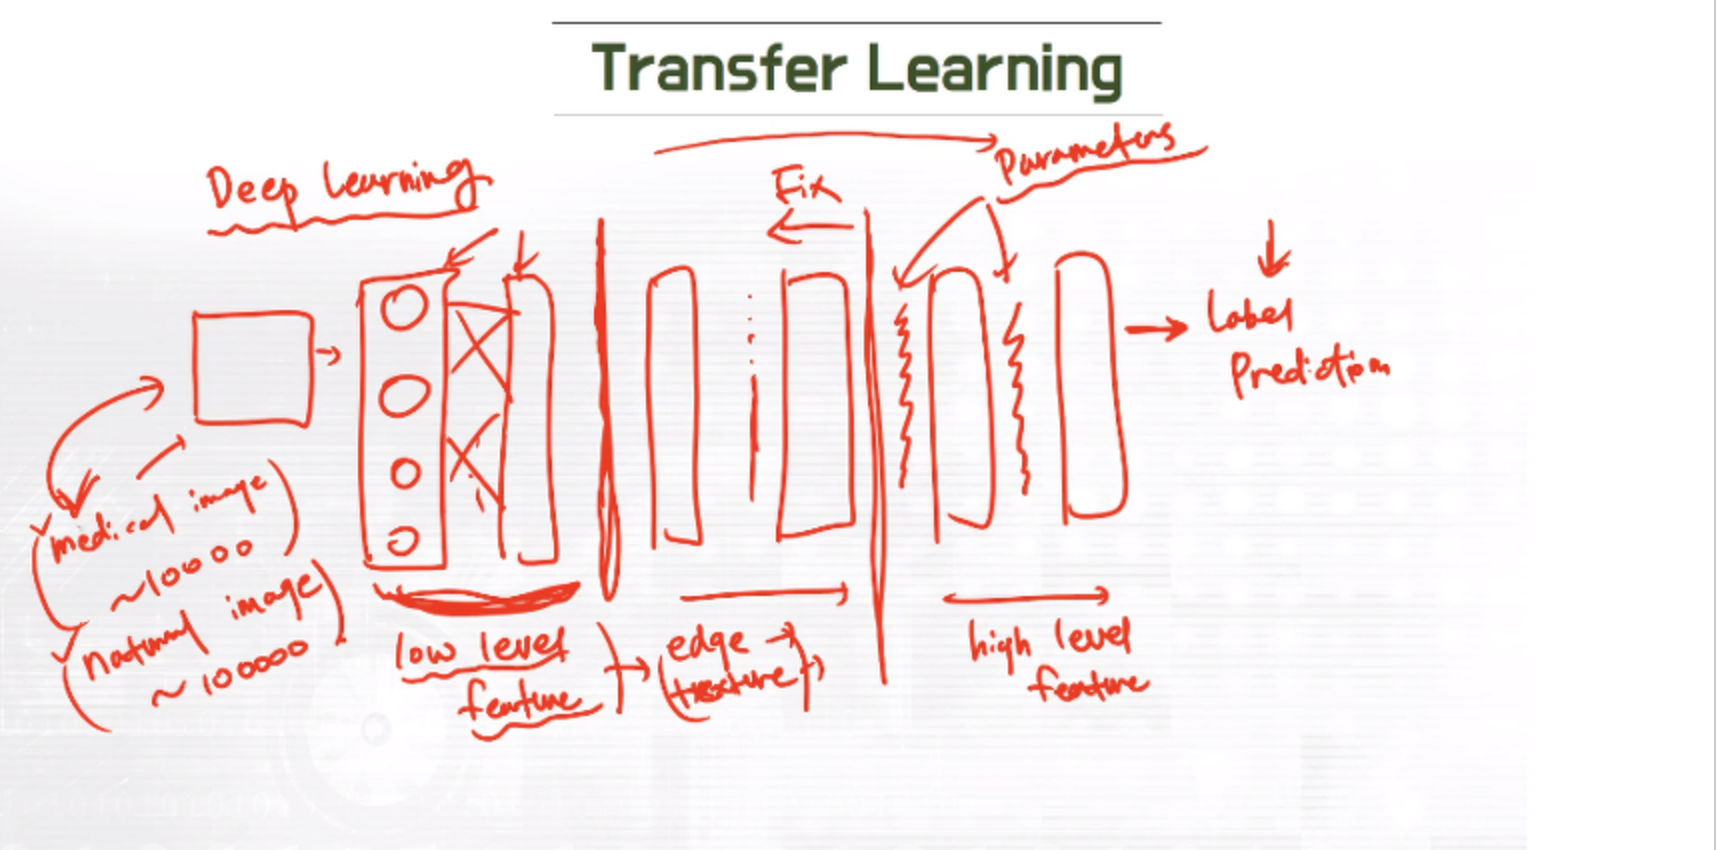 Transfer Learning
Deep Learning
Fix
Parameters
Label
Prediction
medical image
~10000
natural image
~100000
low level
feature
edge
texture
high level
feature